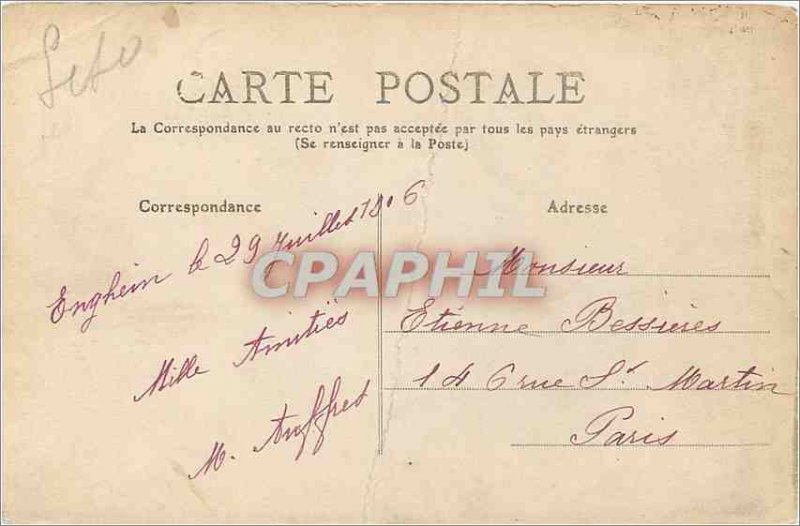 CARTE POSTALE
La Correspondance au recto n'est pas acceptée par tous les pays étrangers
(Se renseigner à la Poste)
Correspondance
Adresse
Enghein le 29 Juillet 1906
Mille Amitiés
M. Auffret
CPAPHIL
Monsieur
Etienne Bessières
146 rue St Martin
Paris